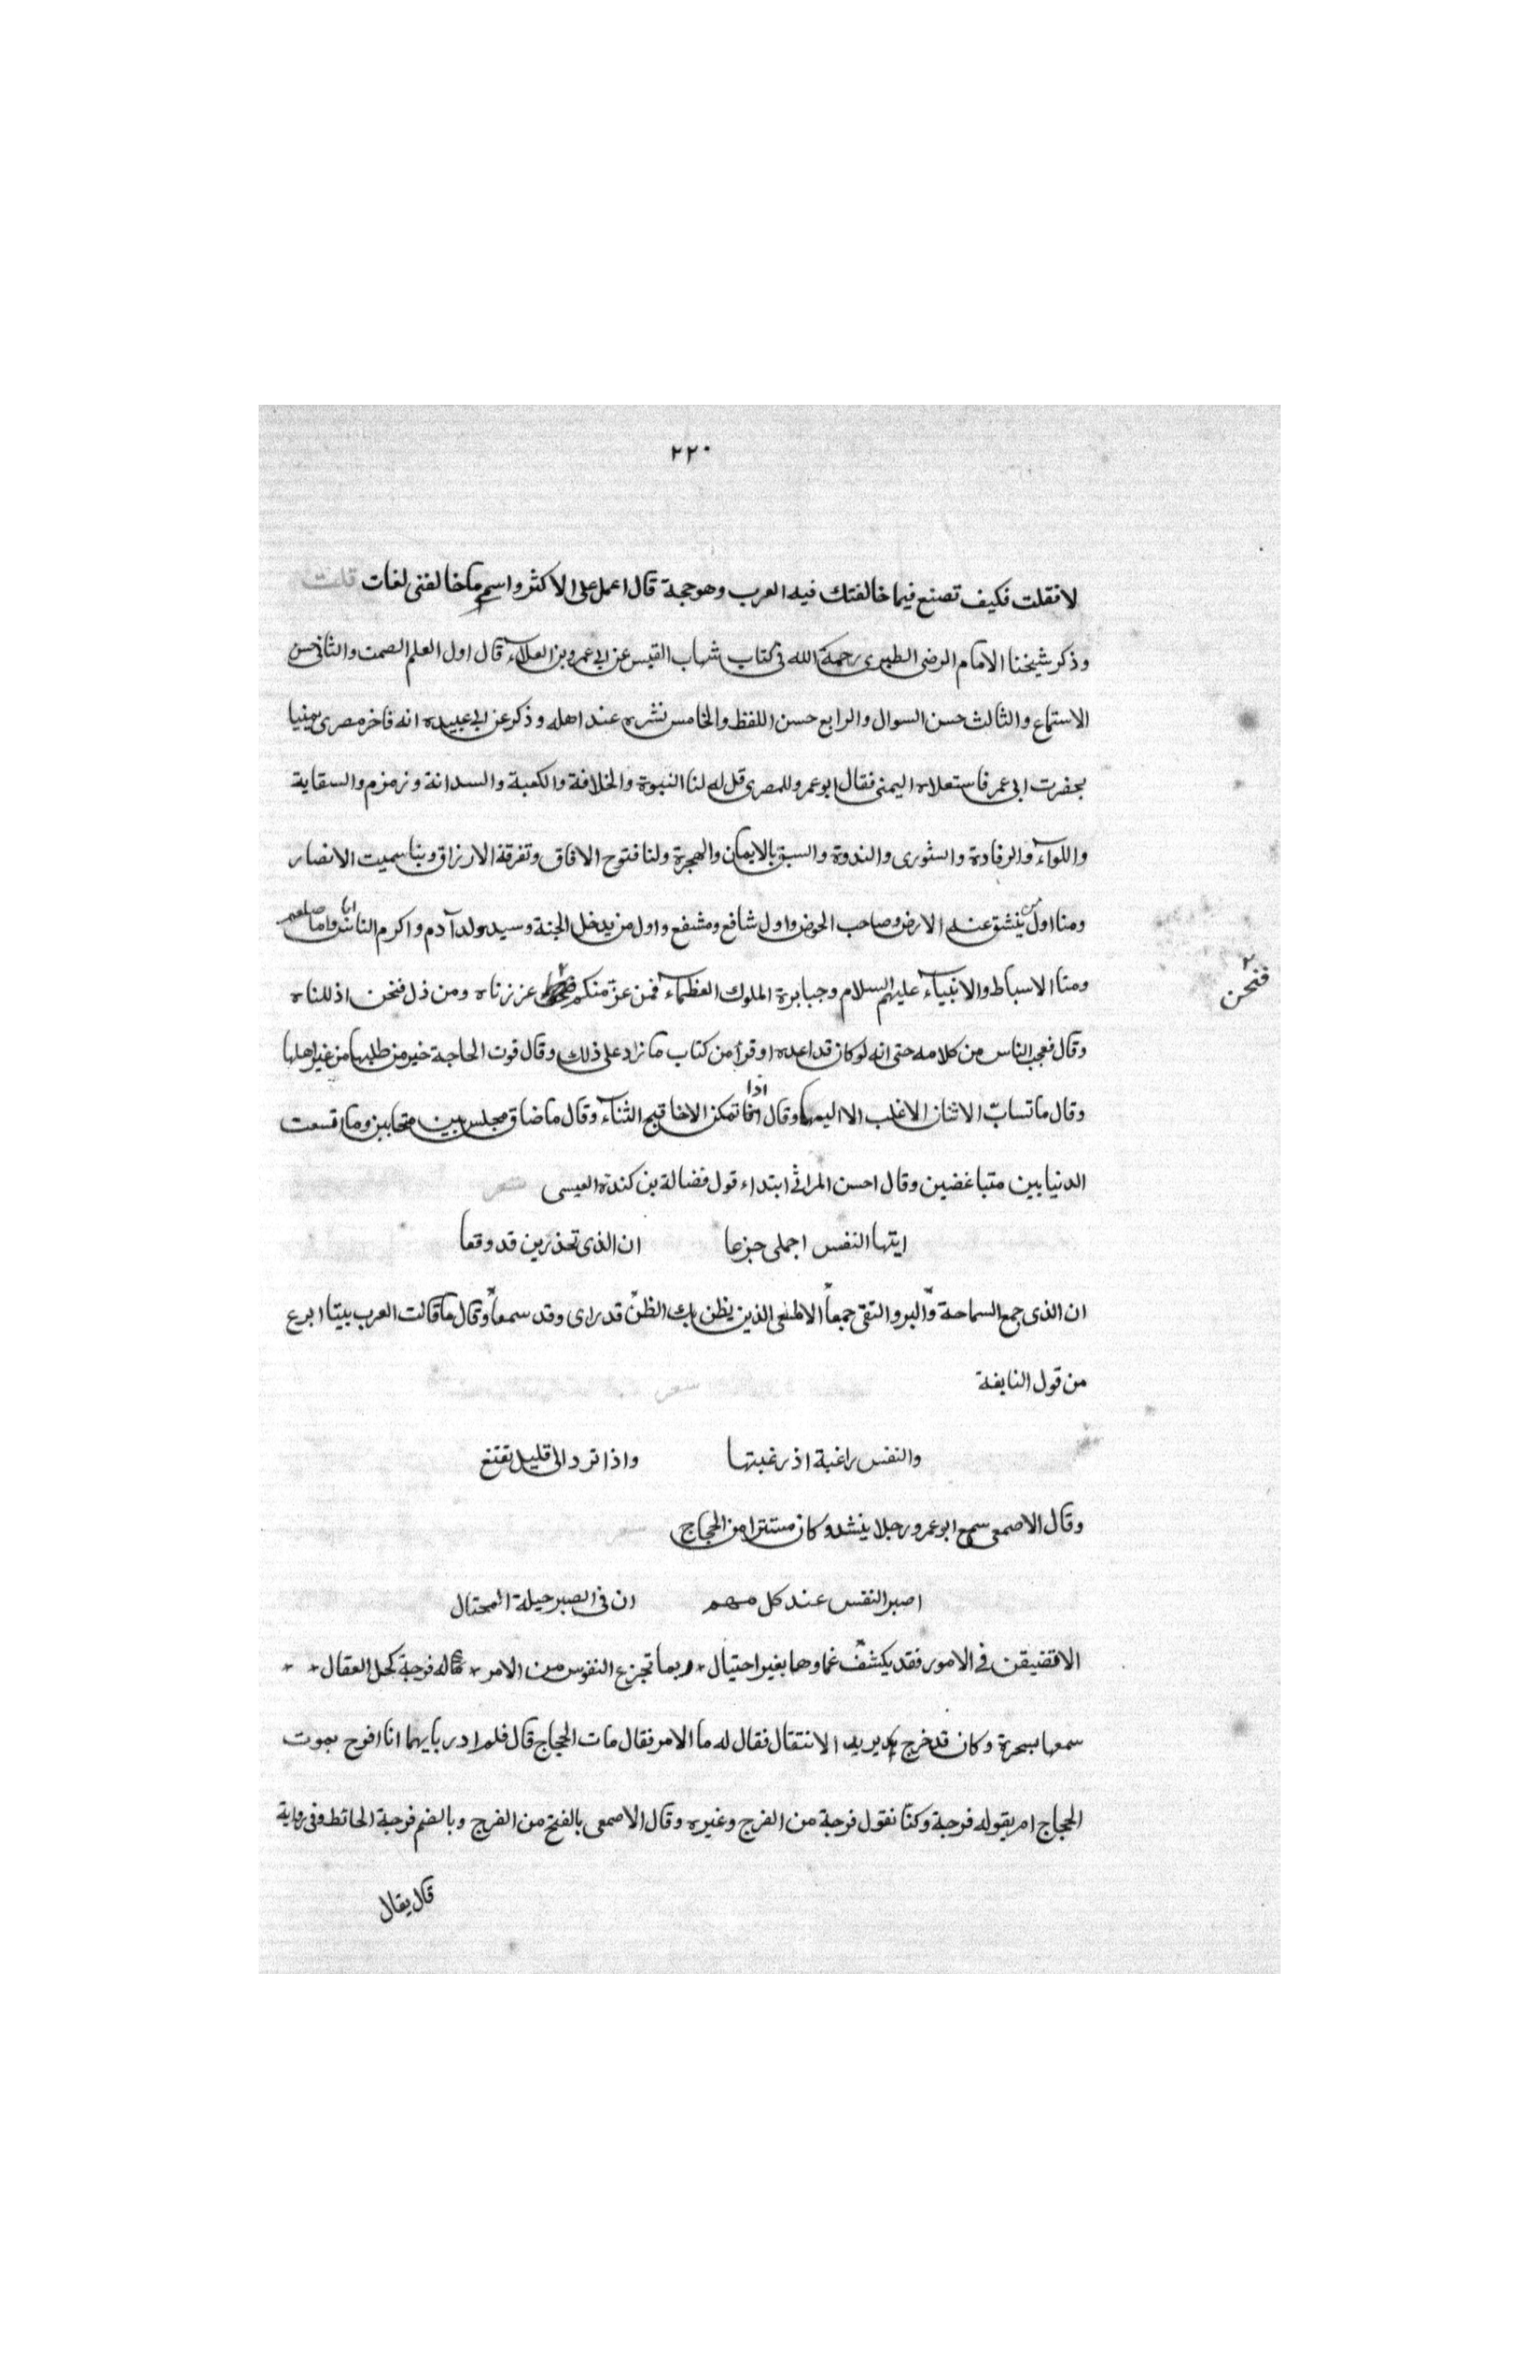 ٢٢٠
لا فقلت فكيف تصنع فيما خالفتك فيه العرب وهو حجة قال اعمل على الاكثر واسم ما خالفنى لغات قلت
وذكر شيخنا الامام الرضى الطبرى رحمة الله فى كتاب شهاب القبس عن ابى عمرو بن العلاء قال اول العلم الصمت والثانى حسن
الاستماع والثالث حسن السوال والرابع حسن اللفظ والخامس نشره عند اهله وذكر عن ابى عبيده انه فاخر مصرى يمنيا
بحضرت ابى عمر فاستعلاه اليمنى فقال ابو عمرو للمصرى قل له لنا النبوة والخلافة والكعبة والسدانة وزمزم والسقاية
واللواء والرفادة والشورى والندوة والسبق بالايمان والهجرة ولنا فتوح الافاق وتفرقة الارزاق وبنا سميت الانصار
ومنا اول من ينشق عنه الارض وصاحب الحوض واول شافع ومشفع واول من يدخل الجنة وسيد ولد آدم واكرم الناس ابا واما صلعم
ومنا الاسباط والانبياء عليهم السلام وجبابرة الملوك العظماء فمن عز منكم عززناه ومن ذل فنحن اذللناه
فنحن
وقال فعجب الناس من كلامه حتى انه لو كان قد اعده او قرأ من كتاب ما زاد على ذلك وقال فوت الحاجة خير من طلبها من غير اهلها
وقال ما تسابّ الاثنان الا غلب الا اليمها وقال اذا تمكن الاخا قبح الثناء وقال ما ضاق مجلس بين متحابين وما اتسعت
الدنيا بين متباغضين وقال احسن المراثى ابتداء قول فضالة بن كندة العيسى شعر
ايتها النفس اجملى جزعا ان الذى تحذرين قد وقعا
ان الذى جمع السماحة والبر والتقى جمعاً الالمعى الذين يظن بك الظنّ قد راى وقد سمعاً وقال ما قالت العرب بيتا ابرع
من قول النابغة شعر
والنفس راغبة اذ رغبتها واذا ترد الى قليل تقتنع
وقال الاصمعى سمع ابو عمرو رجلا ينشد وكان مستترا من الحجاج شعر
اصبر النفس عند كل مهم ان فى الصبر حيلة المحتال
لا تضيقن فى الامور فقد يكشف غماوها بغير احتيال * ربما تجزع النفوس من الامر * له فرجة كحل العقال *
سمعها بسحرة وكان قد خرج يريد الانتقال فقال له ما الامر فقال مات الحجاج قال فلم ادر بايهما انا افرح بموت
الحجاج ام بقوله فرجة وكنا نقول فرجة من الفرج وغيره وقال الاصمعى بالفتح من الفرج وبالضم فرجة الحائط وفى رواية
قال يقال